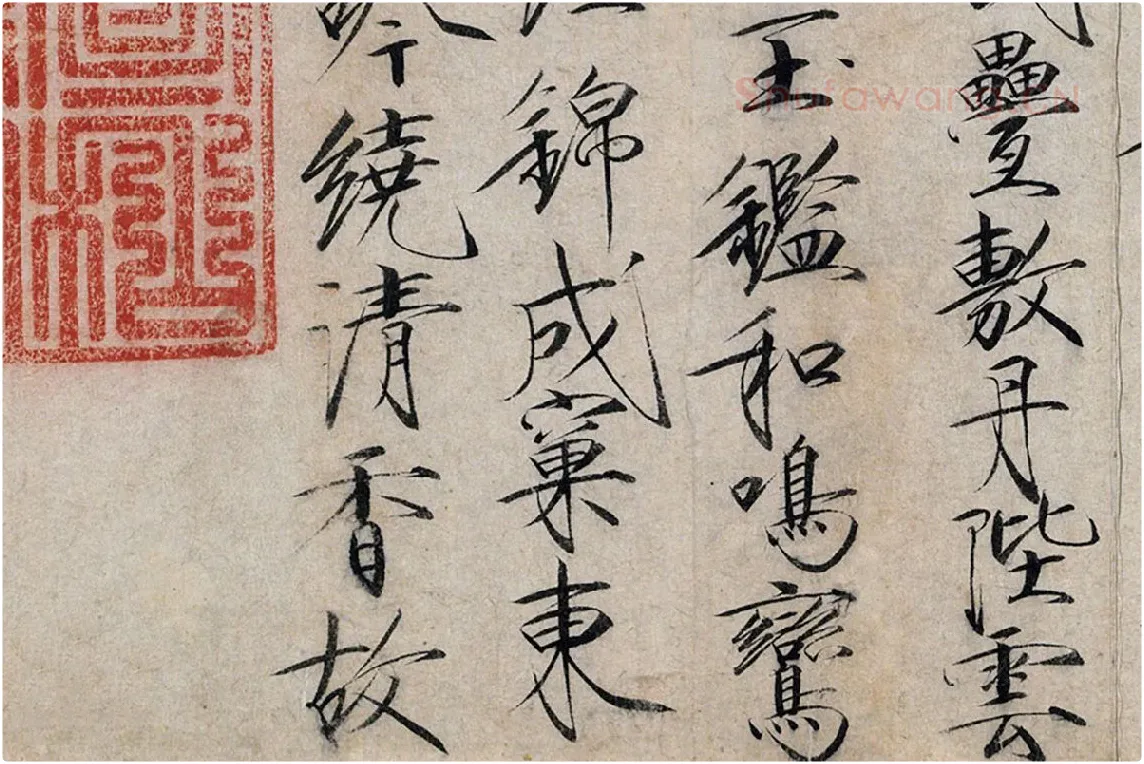 疊敷丹陛雲
玉鑑和鳴鸞
錦成窠東
繞清香故
Shufawang.CN